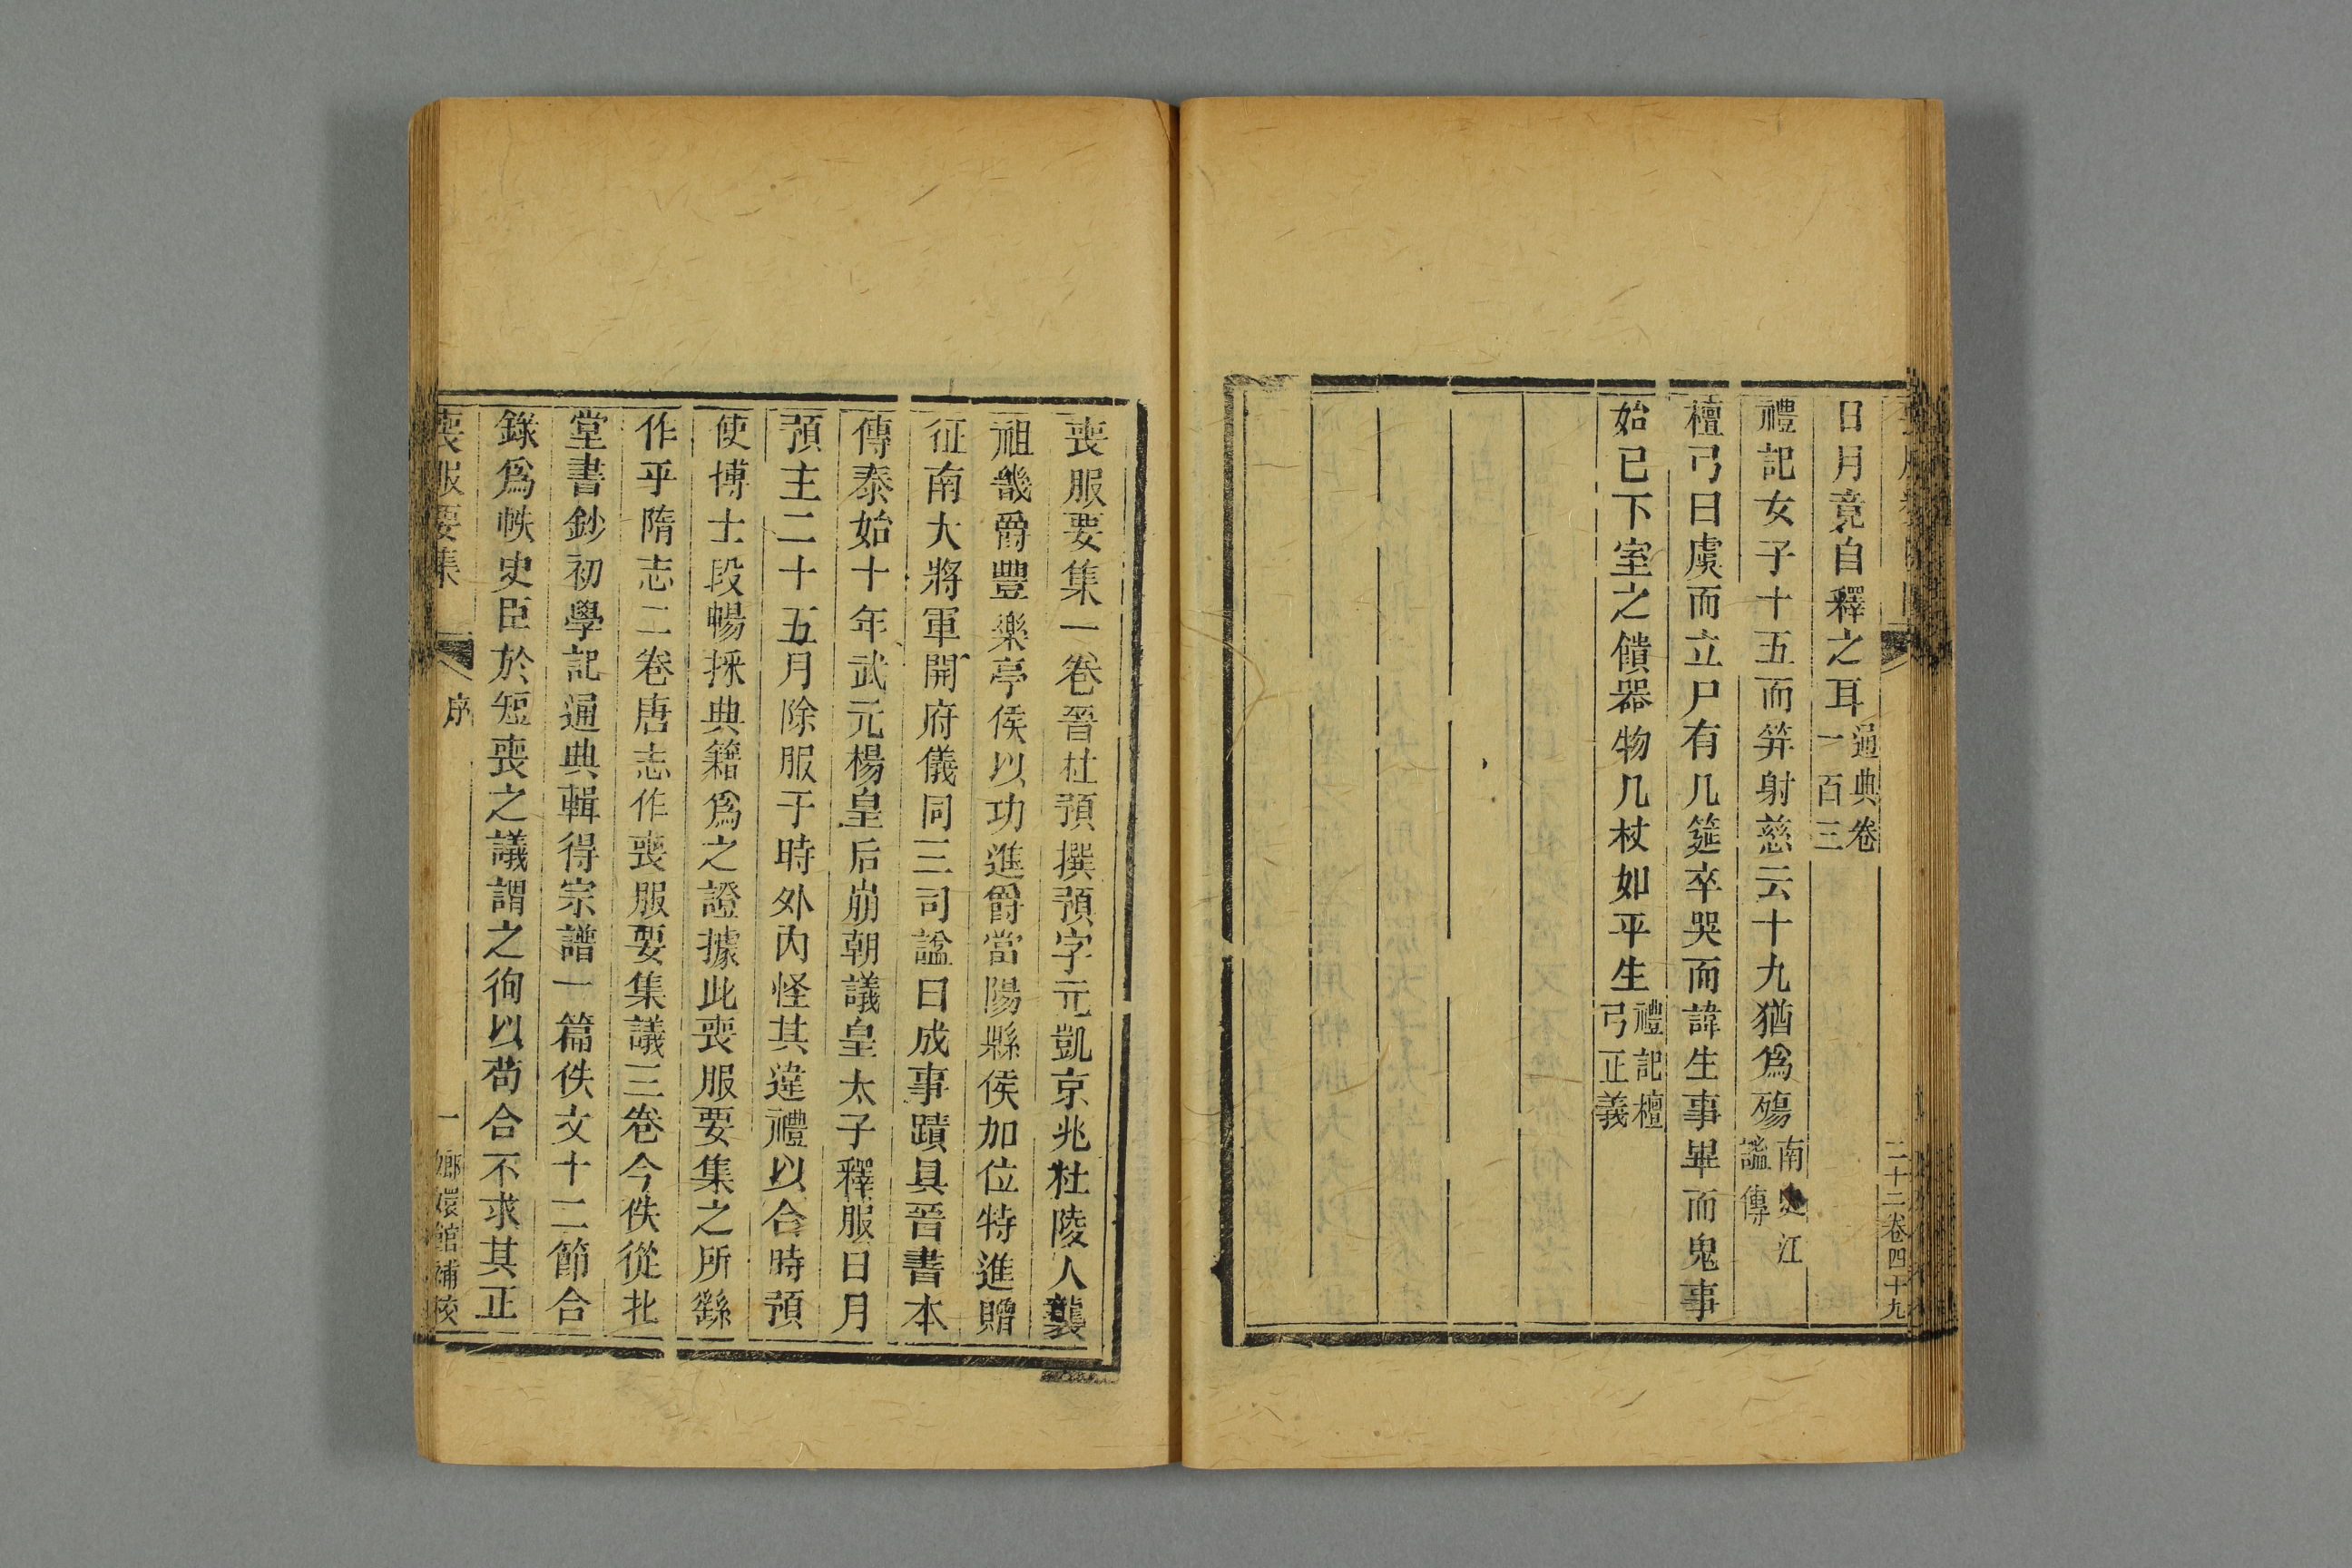 日月竟自釋之耳通典卷一百三
禮記女子十五而笄射慈云十九猶爲殤南史江謐傳
檀弓曰虞而立尸有几筵卒哭而諱生事畢而鬼事
始已下室之饋器物几杖如平生禮記檀弓正義
二十二卷四十九
喪服要集一卷晉杜預撰預字元凱京兆杜陵人襲
祖畿爵豐樂亭侯以功進爵當陽縣侯加位特進贈
征南大將軍開府儀同三司諡曰成事蹟具晉書本
傳泰始十年武元楊皇后崩朝議皇太子釋服日月
預主二十五月除服于時外內怪其違禮以合時預
使博士段暢採典籍爲之證據此喪服要集之所繇
作乎隋志二卷唐志作喪服要集議三卷今佚從北
堂書鈔初學記通典輯得宗譜一篇佚文十二節合
錄爲帙史臣於短喪之議謂之徇以苟合不求其正
喪服要集 序 一 嫏嬛館補校